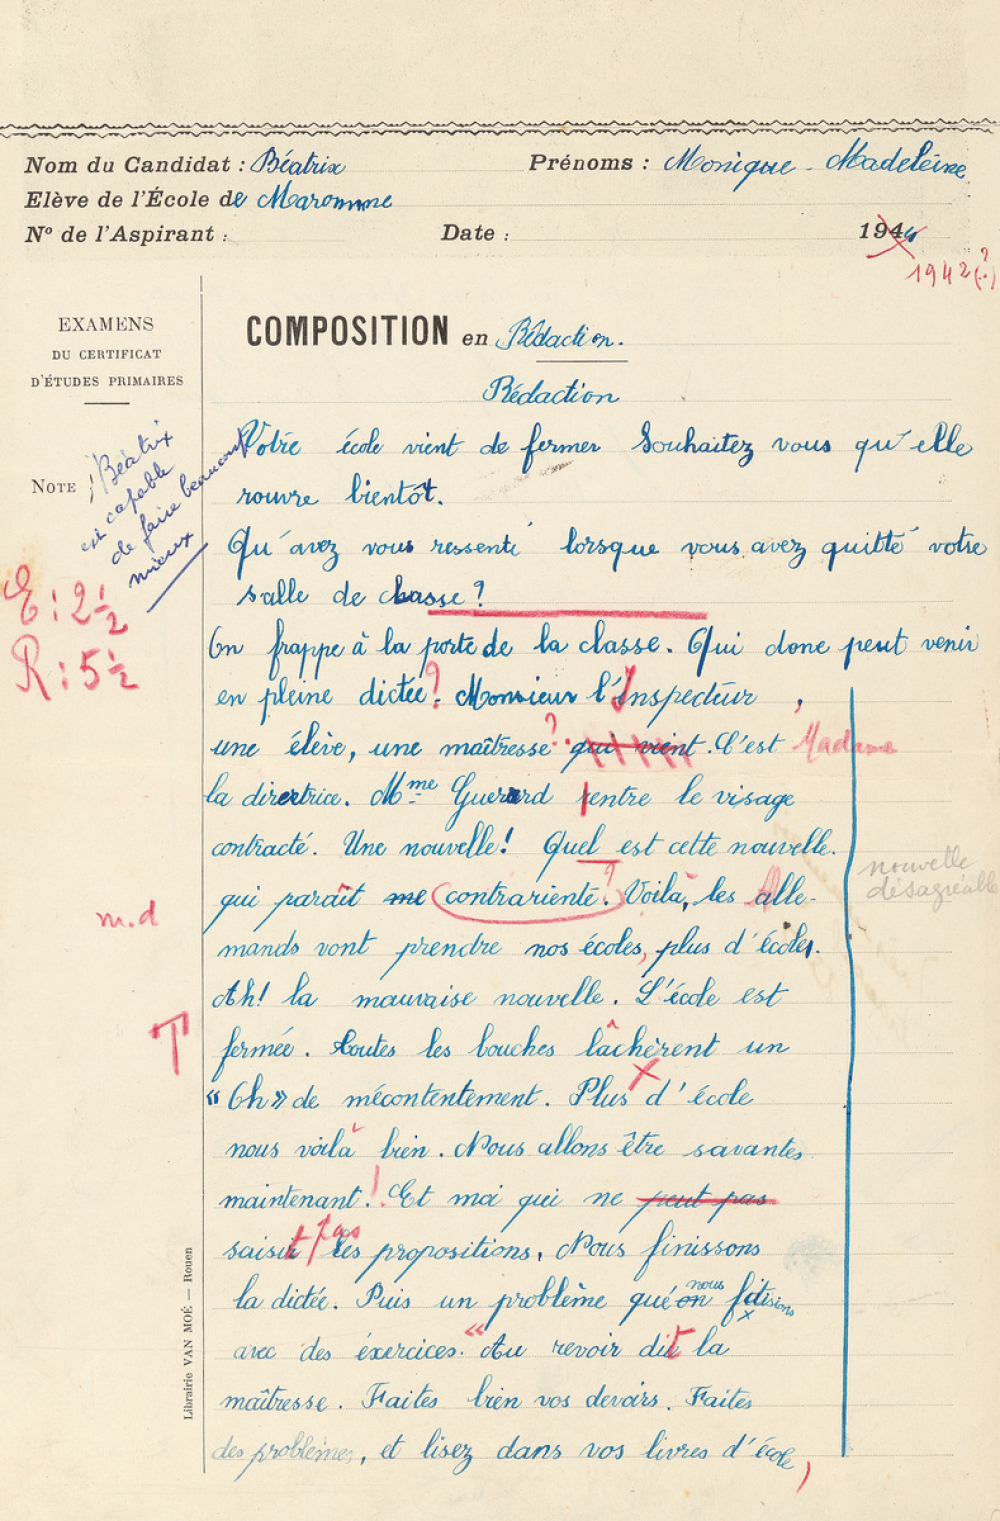 Nom du Candidat : Béatrix Prénoms : Monique - Madeleine
Elève de l'École de Maromme
Nº de l'Aspirant : Date : 1944
1942(?)
EXAMENS
DU CERTIFICAT
D'ÉTUDES PRIMAIRES
COMPOSITION en Rédaction.
Rédaction
NOTE
Béatrix
est capable
de faire beaucoup
mieux
E : 2 1/2
R : 5 1/2
Votre école vient de fermer Souhaitez vous qu'elle
rouvre bientôt.
Qu'avez vous ressenti lorsque vous avez quitté votre
salle de classe ?
On frappe à la porte de la classe. Qui donc peut venir
en pleine dictée ? Monsieur l'Inspecteur,
une élève, une maîtresse ? qui vient. C'est Madame
la directrice. Mme Guerard rentre le visage
contracté. Une nouvelle ! Quel est cette nouvelle.
nouvelle
désagréable
qui paraît me contrariente ? Voilà, les alle-
m.d
mands vont prendre nos écoles, plus d'écoles.
Ah ! la mauvaise nouvelle. L'école est
T
fermée. toutes les bouches lâchèrent un
« Oh » de mécontentement. Plus d'école
nous voilà bien. Nous allons être savantes
maintenant ! Et moi qui ne peut pas
saisit pas les propositions. Nous finissons
la dictée. Puis un problème que on nous faisions
avec des éxercices. « Au revoir dit la
maîtresse. Faites bien vos devoirs. Faites
des problèmes, et lisez dans vos livres d'école,
Librairie VAN MOÉ — Rouen